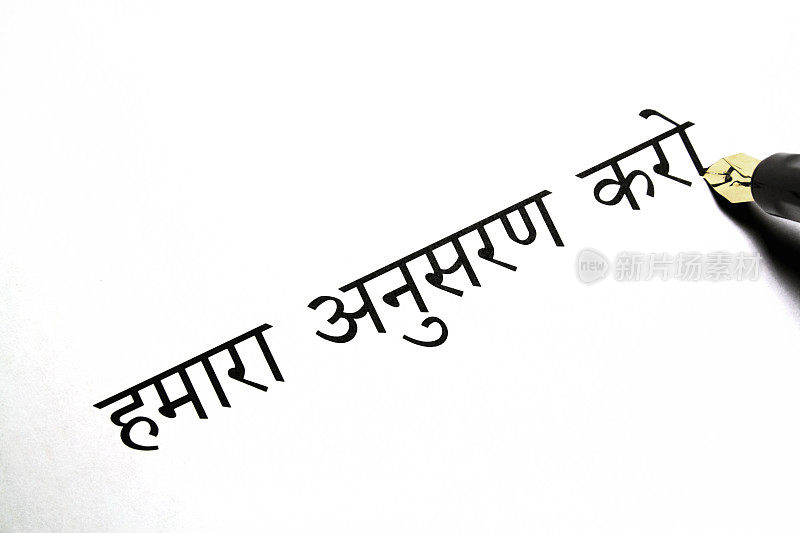 हमारा अनुसरण करो
new 新图片素材